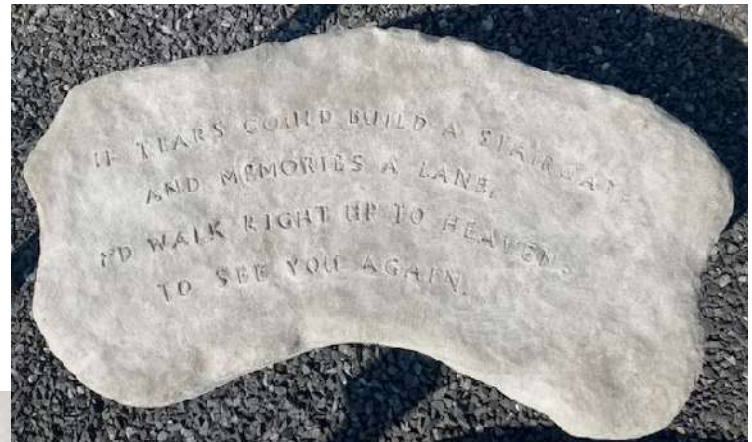 IF TEARS COULD BUILD A STAIRCASE,
AND MEMORIES A LANE,
I'D WALK RIGHT UP TO HEAVEN,
TO SEE YOU AGAIN.